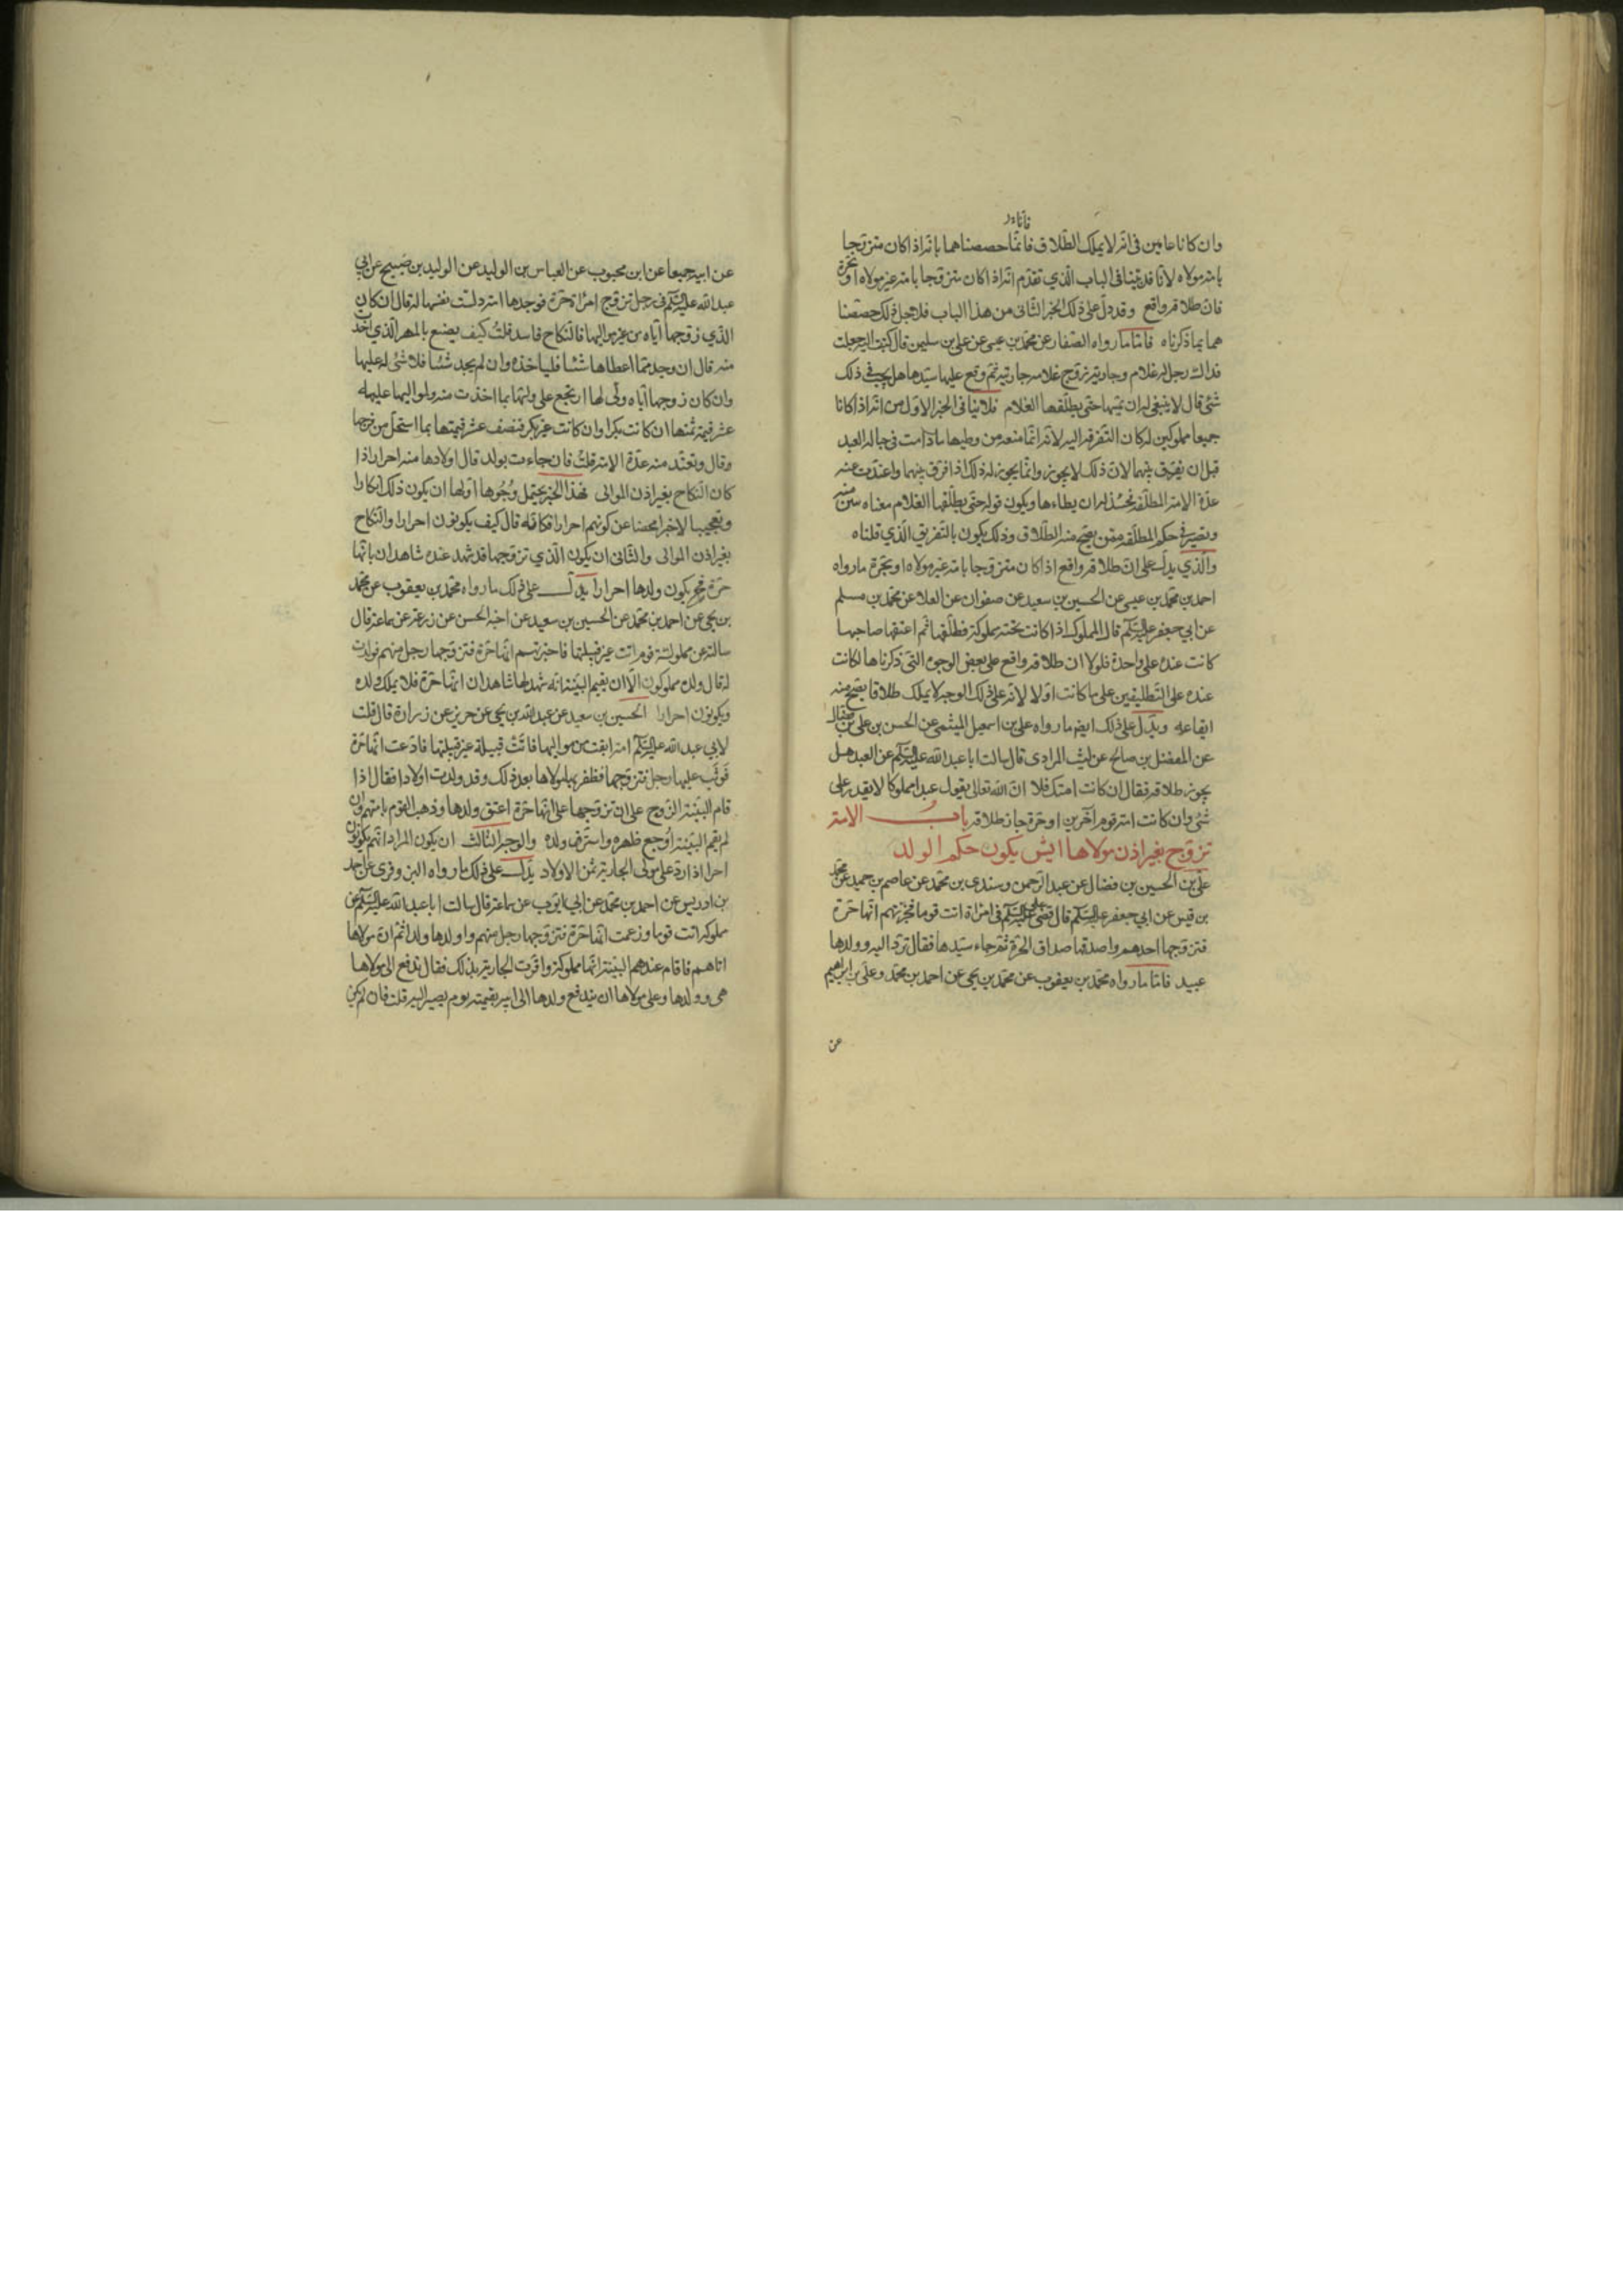 فانا قد
وان كانا عامين فى انه لا يملك الطلاق فانما خصصناهما بانه اذا كان متزوجا
بامة مولاه لانا قد بينا فى الباب الذي تقدم انه اذا كان متزوجا بامة غير مولاه او بحرة
فان طلاقه واقع وقد دل على ذلك الخبر الثانى من هذا الباب فلاجل ذلك خصصنا
هما بما ذكرناه فاما ما رواه الصفار عن محمد بن عيسى عن على بن سليمن قال كتبت اليه جعلت
فداك رجل له غلام وجارية زوج غلامه جاريته ثم وقع عليها سيدها هل يجب فى ذلك
شئ قال لا ينبغى له ان يمسها حتى يطلقها الغلام فلا ينافى الخبر الاول من انه اذا كانا
جميعا مملوكين له كان التفرقة اليه لانه انما منعه من وطيها ما دامت فى حباله العبد
قبل ان يفرق بينهما لان ذلك لا يجوز وانما يجوز له ذلك اذا فرق بينهما واعتدت منه
عدة الامة المطلقة فحينئذ له ان يطاءها ويكون قوله حتى يطلقها الغلام معناه تبين منه
وتصير فى حكم المطلقة ممن يصح منه الطلاق وذلك يكون بالتفريق الذي قلناه
والذي يدل على ان طلاقه واقع اذا كان متزوجا بامة غير مولاه او بحرة ما رواه
احمد بن محمد بن عيسى عن الحسين بن سعيد عن صفوان عن العلا عن محمد بن مسلم
عن ابي جعفر عليه السلام قال المملوك اذا كانت تحته مملوكة فطلقها ثم اعتقها صاحبها
كانت عنده على واحدة فلولا ان طلاقه واقع على بعض الوجوه التى ذكرناها لكانت
عنده على التطليقين على ما كانت اولا لانه على ذلك الوجه لا يملك طلاقا يصح منه
ايقاعه ويدل على ذلك ايضا ما رواه على بن اسمعيل الميثمى عن الحسن بن على بن فضال
عن المفضل بن صالح عن ليث المرادى قال سالت ابا عبد الله عليه السلام عن العبد هل
يجوز طلاقه فقال ان كانت امتك فلا ان الله تعالى يقول عبدا مملوكا لا يقدر على
شئ وان كانت امة قوم آخرين او حرة جاز طلاقه باب الامة
تزوج بغير اذن مولاها ايش يكون حكم الولد
على بن الحسين بن فضال عن عبد الرحمن وسندى بن محمد عن عاصم بن حميد عن محمد
بن قيس عن ابي جعفر عليه السلام قال قضى على عليه السلام فى امراة اتت قوما فخبرتهم انها حرة
فتزوجها احدهم واصدقها صداق الحرة ثم جاء سيدها فقال ترد اليه وولدها
عبيد فاما ما رواه محمد بن يعقوب عن محمد بن يحيى عن احمد بن محمد وعلى بن ابراهيم
عن
عن ابيه جميعا عن ابن محبوب عن العباس بن الوليد عن الوليد بن صبيح عن ابي
عبد الله عليه السلام فى رجل تزوج امراة حرة فوجدها امة دلست نفسها له قال ان كان
الذي زوجها اياه من غير مواليها فالنكاح فاسد قلت كيف يصنع بالمهر الذي اخذت
منه قال ان وجد مما اعطاها شئا فلياخذه وان لم يجد شئا فلا شئ له عليها
وان كان زوجها اياه ولى لها ارتجع على وليها بما اخذت منه ولمواليها عليه
عشر قيمة ثمنها ان كانت بكرا وان كانت غير بكر فنصف عشر قيمتها بما استحل من فرجها
وقال وتعتد منه عدة الامة قلت فان جاءت بولد قال اولادها منه احرار اذا
كان النكاح بغير اذن الموالى فهذا الخبر يحتمل وجوها اولها ان يكون ذلك انكارا
وتعجبا لا خبرا محضا عن كونهم احرارا فكانه قال كيف يكونون احرارا والنكاح
بغير اذن الموالى والثانى ان يكون الذي تزوجها قد شهد عنده شاهدان بانها
حرة فح يكون ولدها احرارا يدل على ذلك ما رواه محمد بن يعقوب عن محمد
بن يحيى عن احمد بن محمد عن الحسين بن سعيد عن اخيه الحسن عن زرعة عن سماعة قال
سالته عن مملوكة قوم اتت غير قبيلتها فاخبرتهم انها حرة فتزوجها رجل منهم فولدت
له قال ولده مملوكون الا ان يقيم البينة انه شهد لها شاهدان انها حرة فلا يملك ولده
ويكونون احرارا الحسين بن سعيد عن عبد الله بن يحيى عن حريز عن زرارة قال قلت
لابي عبد الله عليه السلام امة ابقت من مواليها فاتت قبيلة غير قبيلتها فادعت انها حرة
فوثب عليها رجل فتزوجها فظفر بها مولاها بعد ذلك وقد ولدت اولادا فقال اذا
قام البينة الزوج على ان تزوجها على انها حرة اعتق ولدها وذهب القوم بامتهم وان
لم يقم البينة اوجع ظهره واسترق ولده والوجه الثالث ان يكون المراد انهم يكونون
احرارا اذا رد على مولى الجارية ثمن الاولاد يدل على ذلك ما رواه البزوفرى عن احمد
بن ادريس عن احمد بن محمد عن ابي ايوب عن سماعة قال سالت ابا عبد الله عليه السلام عن
مملوكة اتت قوما وزعمت انها حرة فتزوجها رجل منهم واولدها ولدا ثم ان مولاها
اتاهم فاقام عندهم البينة انها مملوكة واقرت الجارية بذلك فقال تدفع الى مولاها
هى وولدها وعلى مولاها ان يدفع ولدها الى ابيه بقيمته يوم يصير اليه قلت فان لم يكن